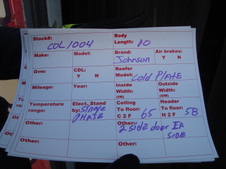 Stock#: CDL1004
Body Length: 80
Make: Model: Brand: Johnson Air brakes: Y N
Gvw: CDL: Y N Reefer Model: Cold Plate
Mileage: Year: Inside Width: Inside Height:
Temperature range: Elect. Stand by: Single Phase Ceiling To floor: H 2 F 65 Header To floor: H 2 F 58
Other: Other: 2 side door EA SIDE
Other: